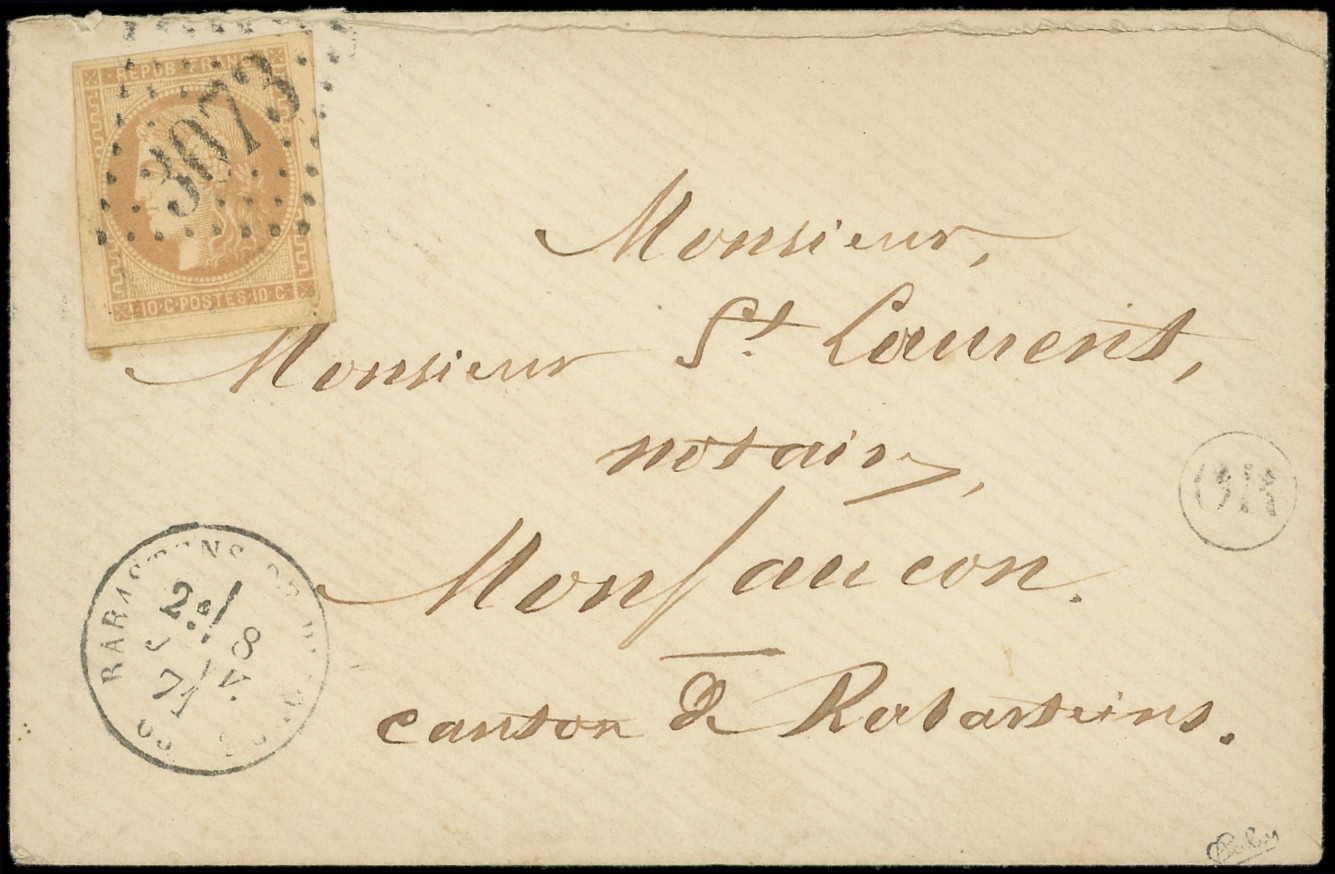 REPUB FRANC
3073
10·C·POSTES·10·C
Monsieur,
Monsieur St. Laurent,
notaire,
Monfaucon.
canton de Rabasteins.
OR
RABASTENS
2e/
8
71